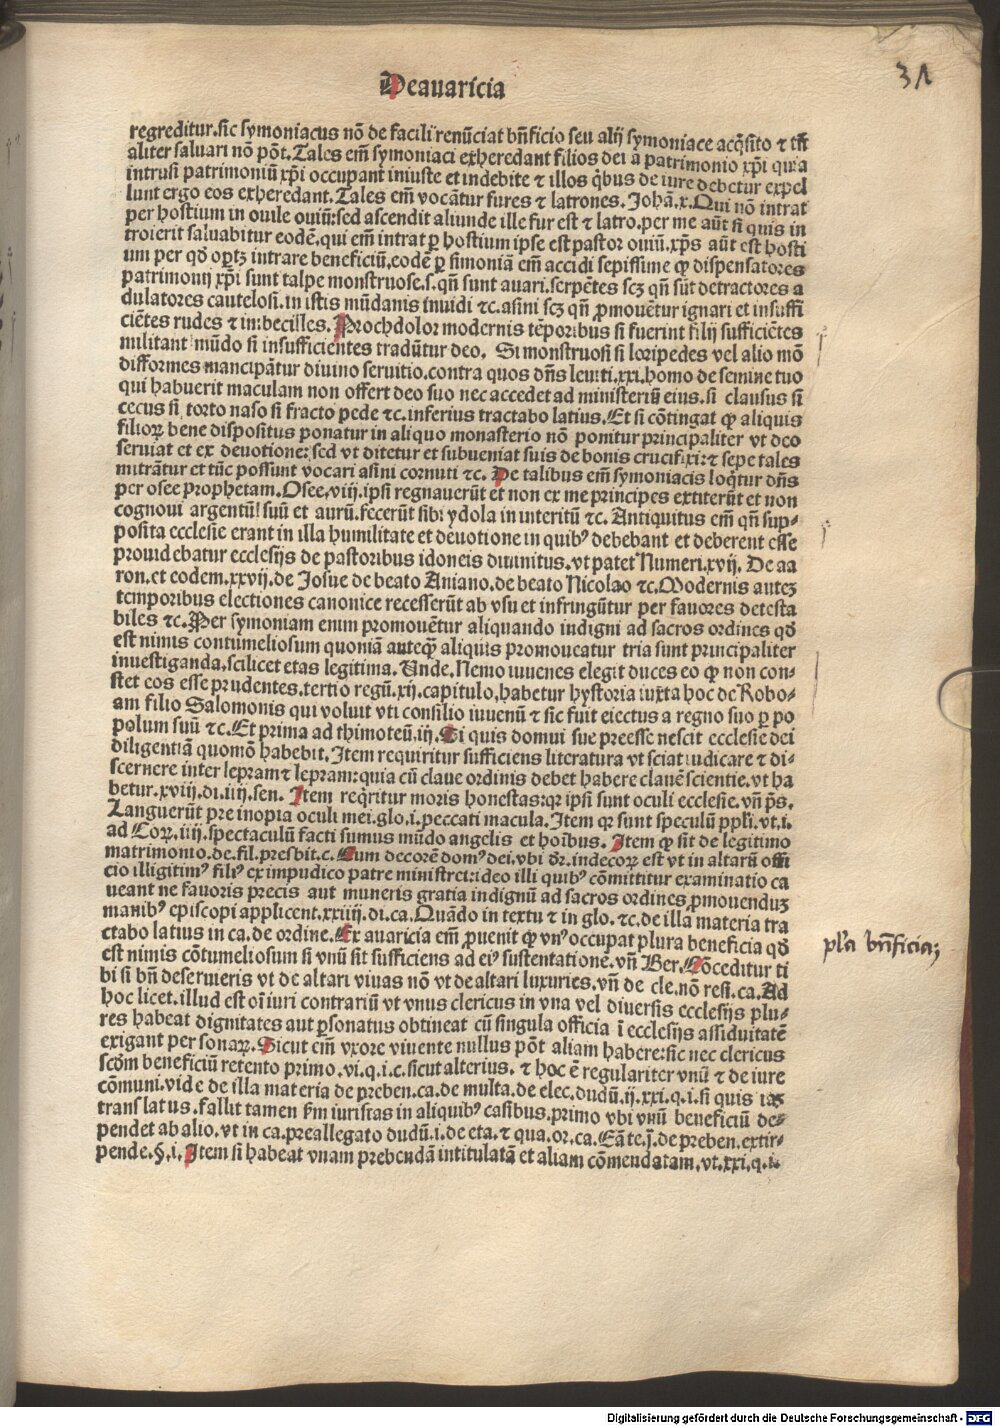 De auaricia
31
regreditur. sic symoniacus nō de facili renūciat bn̄ficio seu alij symoniace acq̄sito ⁊ tn̄
aliter saluari nō pōt. Tales em̄ symoniaci exheredant filios dei a patrimonio xp̄i quia
intrusi patrimoniū xp̄i occupant iniuste et indebite ⁊ illos q̄bus de iure debetur expel
lunt ergo eos exheredant. Tales em̄ vocātur fures ⁊ latrones. Johā. x. Qui nō intrat
per hostium in ouile ouiū: sed ascendit aliunde ille fur est ⁊ latro. per me aūt si quis in
troierit saluabitur eodē. qui em̄ intrat ꝑ hostium ipse est pastor ouiū. xp̄s aūt est hosti
um per qd̄ oꝑtꝫ intrare beneficiū. eodē ꝑ simoniā em̄ accidi sepissime ꝙ dispensatores
patrimonij xp̄i sunt talpe monstruose. s. qn̄ sunt auari. serpētes scꝫ qn̄ sūt detractores a
dulatores cautelosi. in istis mūdanis inuidi ⁊c. asini scꝫ qn̄ ꝓmouētur ignari et insuffi
ciētes rudes ⁊ imbecilles. Prochdolor modernis tēporibus si fuerint filij sufficiētes
militant mūdo si insufficientes tradūtur deo. Si monstruosi si loripedes vel alio mō
difformes mancipātur diuino seruitio. contra quos dn̄s leuiti. xxi. homo de semine tuo
qui habuerit maculam non offert deo suo nec accedet ad ministeriū eius. si clausus si
cecus si torto naso si fracto pede ⁊c. inferius tractabo latius. Et si cōtingat ꝙ aliquis
filioꝝ bene dispositus ponatur in aliquo monasterio nō ponitur principaliter vt deo
seruiat et ex deuotione: sed vt ditetur et subueniat suis de bonis crucifixi: ⁊ sepe tales
mitrātur et tūc possunt vocari asini cornuti ⁊c. De talibus em̄ symoniacis loq̄tur dn̄s
per osee prophetam. Osee. viij. ipsi regnauerūt et non ex me principes extiterūt et non
cognoui argentū suū et aurū. fecerūt sibi ydola in interitū ⁊c. Antiquitus em̄ qn̄ sup-
posita ecclesie erant in illa humilitate et deuotione in quibꝰ debebant et deberent esse
prouidebatur ecclesijs de pastoribus idoneis diuinitus. vt patet Numeri. xvij. De aa
ron. et eodem. xxvij. de Josue de beato Aniano. de beato Nicolao ⁊c. Modernis autez
temporibus electiones canonice recesserūt ab vsu et infringūtur per fauores detesta
biles ⁊c. Per symoniam enim promouētur aliquando indigni ad sacros ordines qd̄
est nimis contumeliosum quoniā anteqꝫ aliquis promoueatur tria sunt principaliter
inuestiganda. scilicet etas legitima. Unde. Nemo iuuenes elegit duces eo ꝙ non con-
stet eos esse prudentes. tertio regū. xij. capitulo, habetur hystoria iuxta hoc de Robo-
am filio Salomonis qui voluit vti consilio iuuenū ⁊ sic fuit eiectus a regno suo ꝑ po
polum suū ⁊c. Et prima ad thimoteū. iij. Si quis domui sue preesse nescit ecclesie dei
diligentiā quomō habebit. Item requiritur sufficiens literatura vt sciat iudicare ⁊ di-
scernere inter lepram ⁊ lepram: quia cū claue ordinis debet habere clauē scientie. vt ha
betur. xviij. di. iiij. sen. Item req̄ritur moris honestas: qꝛ ipsi sunt oculi ecclesie. vn̄ ps̄.
Languerūt pre inopia oculi mei. glo. i. peccati macula. Item qꝛ sunt speculū ppl̄i. vt. i.
ad Coꝝ. iiij. spectaculū facti sumus mūdo angelis et hoībus. Item ꝙ sit de legitimo
matrimonio. de. fil. presbit. c. Cum decorē domꝰ dei. vbi dr̄. indecoꝝ est vt in altariū offi
cio illigitimꝰ filiꝰ ex impudico patre ministret: ideo illi quibꝰ cōmittitur examinatio ca
ueant ne fauoris precis aut muneris gratia indignū ad sacros ordines ꝓmouenduꝫ
manibꝰ episcopi applicent. xxiiij. di. ca. Quādo in textu ⁊ in glo. ⁊c. de illa materia tra
ctabo latius in ca. de ordine. Ex auaricia em̄ ꝓuenit ꝙ vnꝰ occupat plura beneficia qd̄
est nimis cōtumeliosum si vnū sit sufficiens ad eiꝰ sustentationē. vn̄ Ber. Cōceditur ti
bi si bn̄ deseruieris vt de altari viuas nō vt de altari luxuries. vn̄ de cle. nō resi. ca. Ad
hoc licet. illud est oī iuri contrariū vt vnus clericus in vna vel diuersis ecclesijs plu-
res habeat dignitates aut ꝑsonatus obtineat cū singula officia ī ecclesijs assiduitatē
exigant per sonaꝝ. Sicut em̄ vxore viuente nullus pōt aliam habere: sic nec clericus
scd̄m beneficiū retento primo. vi. q. i. c. sicut alterius. ⁊ hoc ē regulariter vnū ⁊ de iure
cōmuni. vide de illa materia de preben. ca. de multa. de elec. dudū. ij. xxi. q. i. si quis iaꝫ
translatus. fallit tamen fm̄ iuristas in aliquibꝰ casibus. primo vbi vnū beneficiū de-
pendet ab alio. vt in ca. preallegato dudū. i. de eta. ⁊ qua. or. ca. Eā te. j. de preben. extir-
pende. §. i. Item si habeat vnam prebendā intitulatā et aliam cōmendatam. vt. xxi. q. i.
pl'a bn̄ficia;
Digitalisierung gefördert durch die Deutsche Forschungsgemeinschaft - DFG